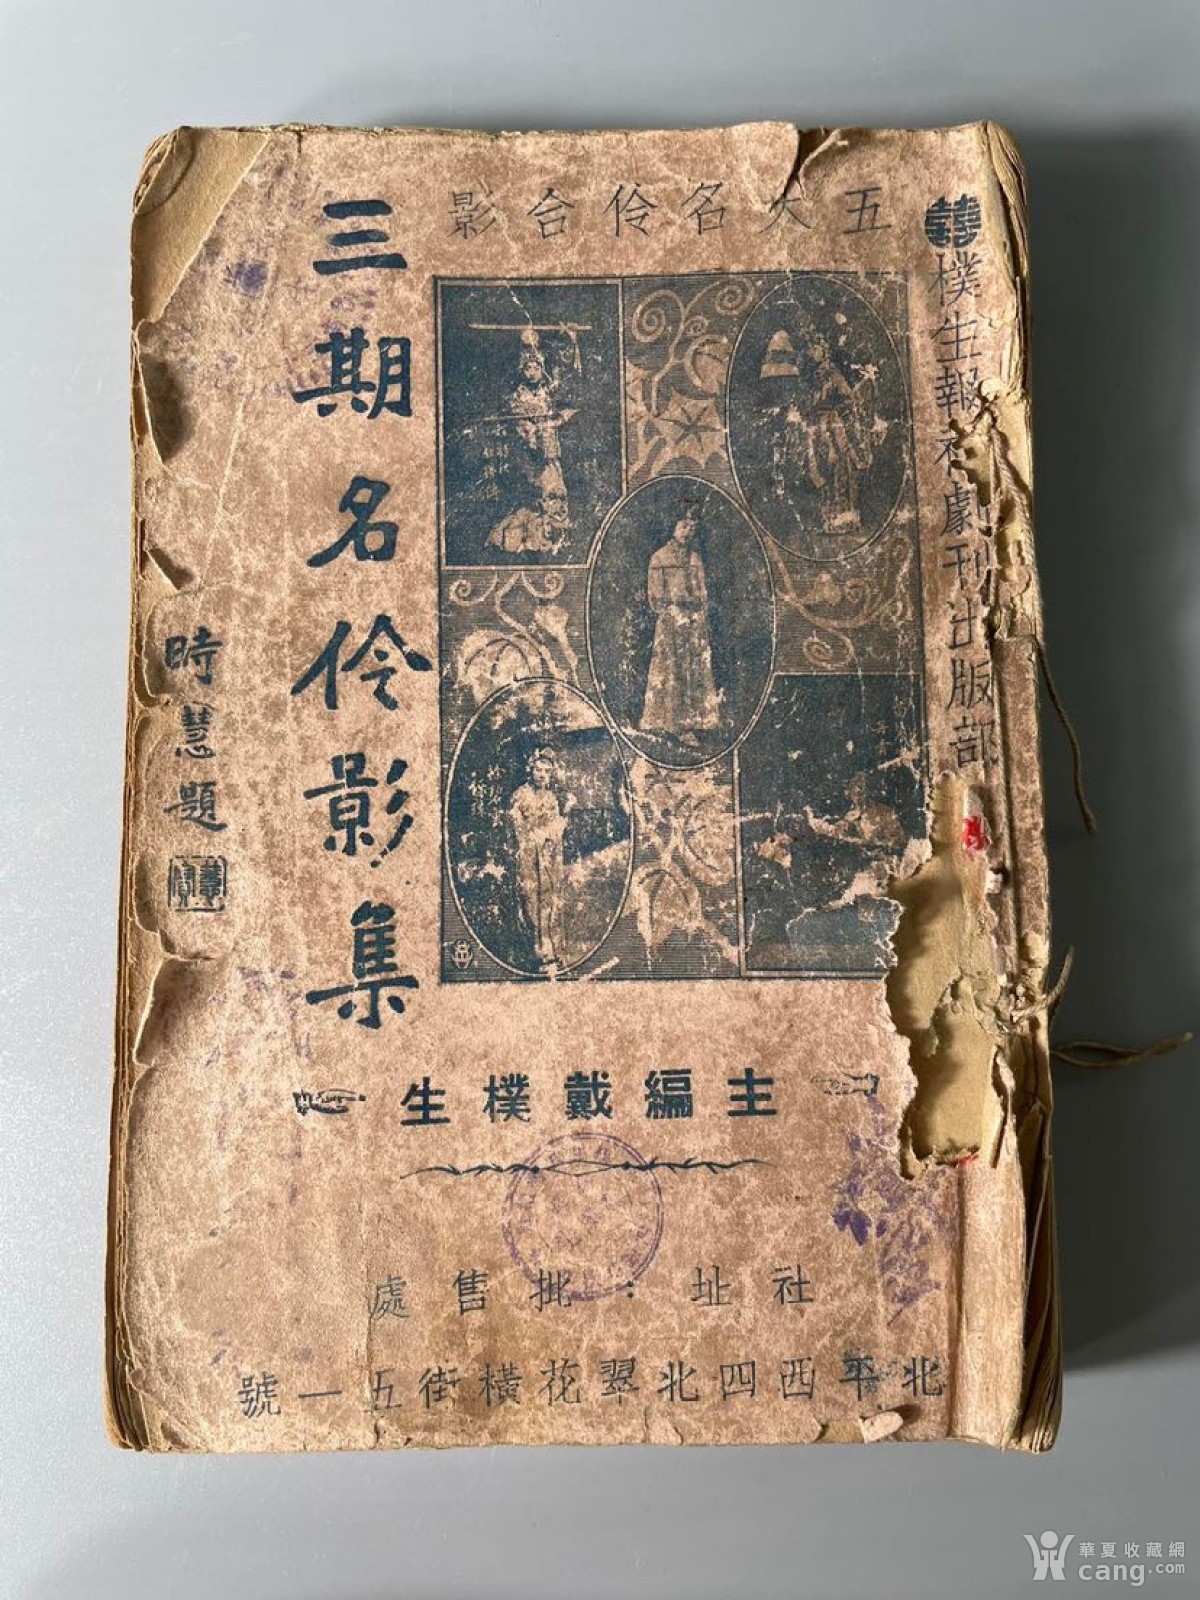 樸生報社劇刊出版部
五大名伶合影
三期名伶影集
時慧題
主編戴樸生
社址：批售處
北平西四北翠花橫街五一號
華夏收藏網
cang.com